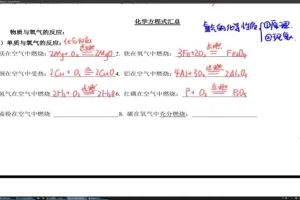 化学方程式汇总
氧气的化学性质
物质与氧气的反应：
)单质与氧气的反应：化合反应
镁在空气中燃烧：2Mg + O₂ 点燃 2MgO 2. 铁在氧气中燃烧：3Fe+2O₂ 点燃 Fe₃O₄
铜在空气中受热：2Cu + O₂ 2CuO 4. 铝在空气中燃烧：4Al+3O₂ 2Al₂O₃
氢气在空气中燃烧：2H₂ + O₂ 点燃 2H₂O 6. 红磷在空气中燃烧：P + O₂ 点燃 P₂O₅
硫粉在空气中燃烧： 8. 碳在氧气中充分燃烧：